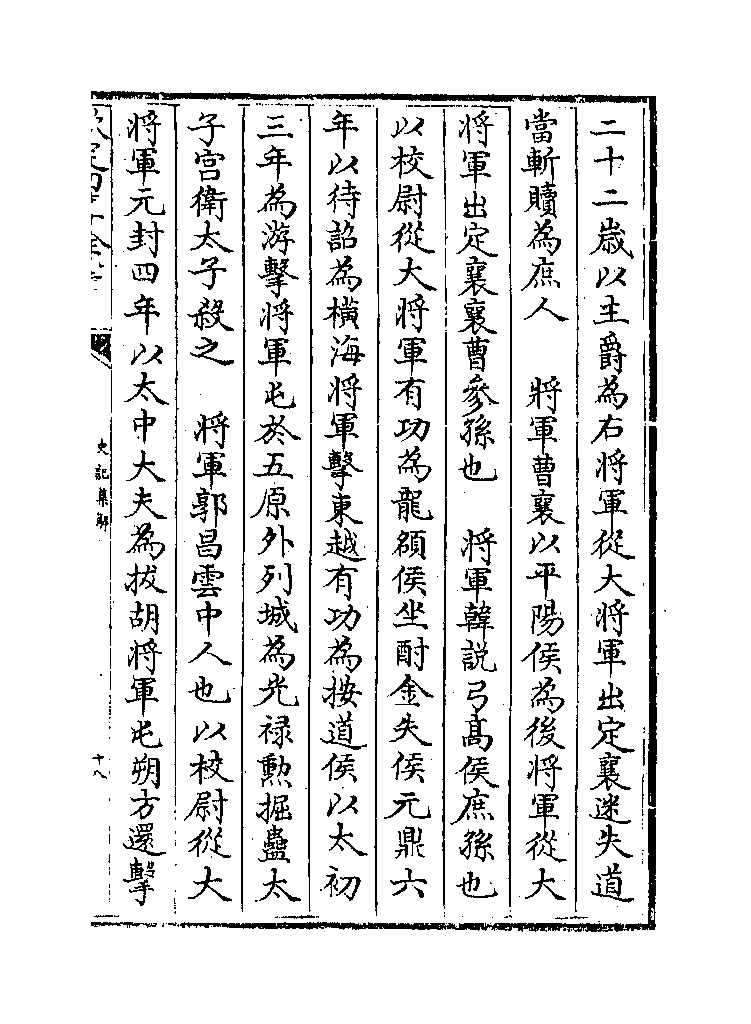 二十二嵗以主爵為右將軍從大將軍出定襄迷失道
當斬贖為庶人　將軍曹襄以平陽侯為後將軍從大
將軍出定襄襄曹參孫也　將軍韓説弓髙侯庶孫也
以校尉從大將軍有功為龍頟侯坐酎金失侯元鼎六
年以待詔為橫海將軍擊東越有功為按道侯以太初
三年為游擊將軍屯於五原外列城為光禄勲掘蠱太
子宫衛太子殺之　將軍郭昌雲中人也以校尉從大
將軍元封四年以太中大夫為拔胡將軍屯朔方還擊
史記集解
十八